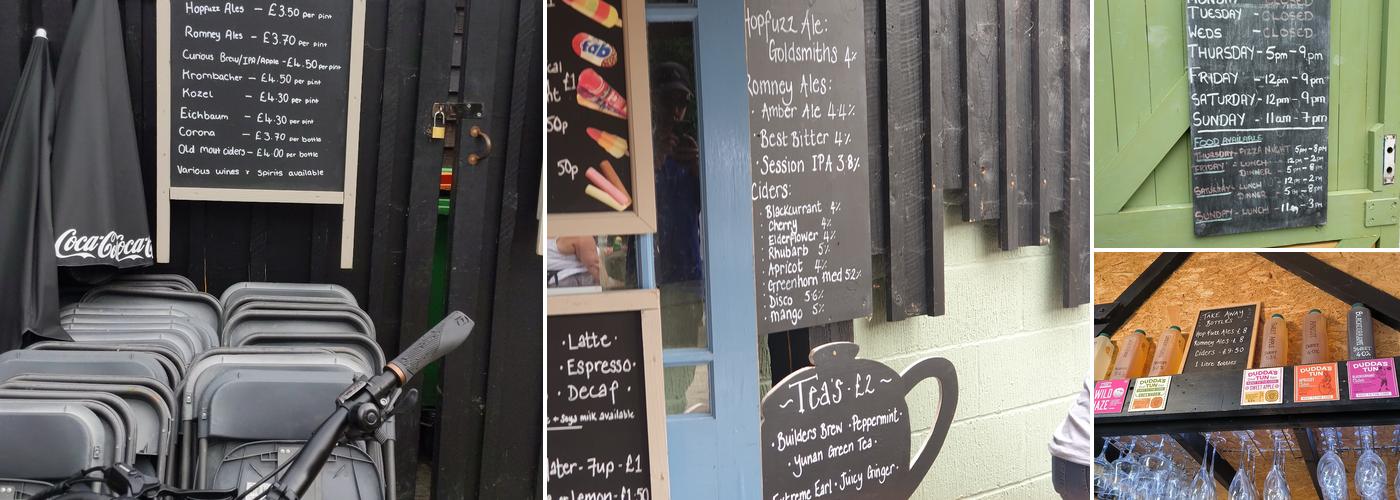 Hopfuzz Ales - £3.50 per pint
Romney Ales - £3.70 per pint
Curious Brew/IPA/Apple - £4.50 per pint
Krombacher - £4.50 per pint
Kozel - £4.30 per pint
Eichbaum - £4.30 per pint
Corona - £3.70 per bottle
Old mout ciders - £4.00 per bottle
Various wines + spirits available
Coca-Cola
fab
£1
50p
50p
Hopfuzz Ale:
Goldsmiths 4%
Romney Ales:
· Amber Ale 4.4%
· Best Bitter 4%
· Session IPA 3.8%
Ciders:
· Blackcurrant 4%
· Cherry 4%
· Elderflower 4%
· Rhubarb 5%
· Apricot 4%
· Greenhorn med 5.2%
· Disco 5.6%
· mango 5%
· Latte ·
· Espresso ·
· Decaf ·
+ Soya milk available
7up - £1
Lemon - £1.50
~ Tea's · £2 ~
· Builders Brew · Peppermint ·
· Yunan Green Tea ·
Extreme Earl · Juicy Ginger ·
MONDAY - CLOSED
TUESDAY - CLOSED
WEDS - CLOSED
THURSDAY - 5pm - 9pm
FRIDAY - 12pm - 9pm
SATURDAY - 12pm - 9pm
SUNDAY - 11am - 7pm
FOOD AVAILABLE
THURSDAY - PIZZA NIGHT 5pm - 8pm
FRIDAY - LUNCH 12pm - 2pm
DINNER 5pm - 8pm
SATURDAY LUNCH 12pm - 2pm
DINNER 5pm - 8pm
SUNDAY - LUNCH - 11am - 3pm
TAKE AWAY
BOTTLES
Hop Fuzz Ales £8
Romney Ales £8
Ciders - £9.50
1 Litre Bottles
BLACKCURRANT
WILD
HAZE
DUDDA'S
TUN
DUDDA'S
TUN
SWEET APPLE
DUDDA'S
TUN
APRICOT
DUDDA'S
TUN
BLACKCURRANT